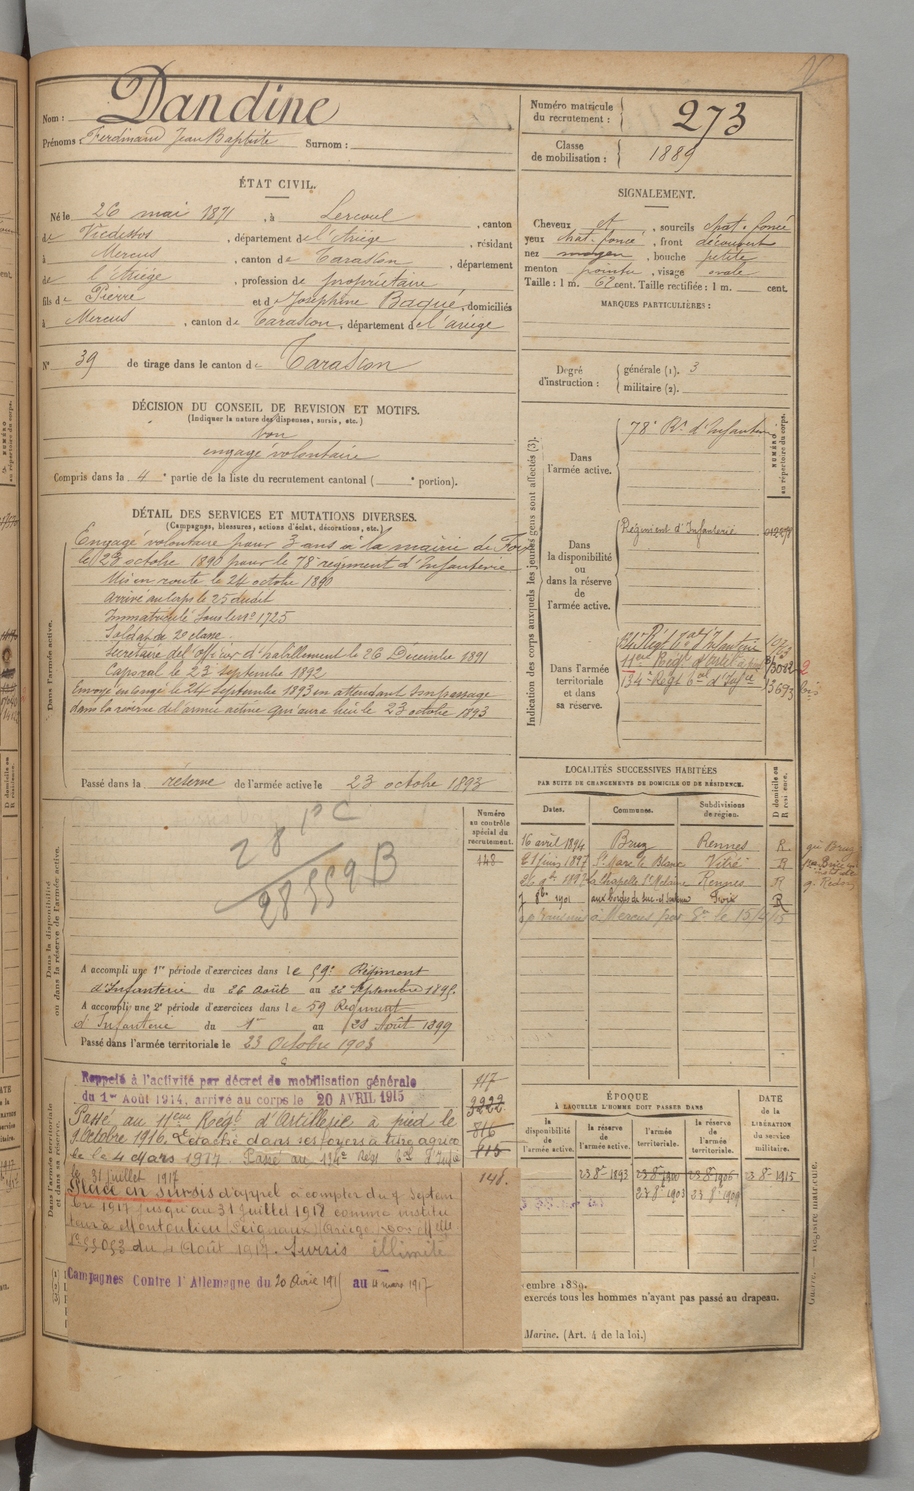 Nom : Dandine
Prénoms : Ferdinand Jean Baptiste Surnom :
Numéro matricule du recrutement : 273
Classe de mobilisation : 1889
ÉTAT CIVIL.
Né le 26 mai 1871, à Lercoul, canton
de Vicdessos, département de l'Ariège, résidant
à Mercus, canton de Tarascon, département
de l'Ariège, profession de propriétaire
fils de Pierre et de Joséphine Baqué, domiciliés
à Mercus, canton de Tarascon, département de l'ariège
N° 39 de tirage dans le canton de Tarascon
SIGNALEMENT.
Cheveux et, sourcils chat. foncé
yeux chat. foncé, front découvert
nez moyen, bouche petite
menton pointu, visage ovale
Taille : 1 m. 62 cent. Taille rectifiée : 1 m. cent.
MARQUES PARTICULIÈRES :
Degré d'instruction : générale (1). 3
militaire (2).
DÉCISION DU CONSEIL DE REVISION ET MOTIFS.
(Indiquer la nature des dispenses, sursis, etc.)
bon
engagé volontaire
Compris dans la 4e partie de la liste du recrutement cantonal ( e portion).
DÉTAIL DES SERVICES ET MUTATIONS DIVERSES.
(Campagnes, blessures, actions d'éclat, décorations, etc.)
Dans l'armée active.
Engagé volontaire pour 3 ans à la mairie de Foix
le 23 octobre 1890 pour le 78e régiment d'Infanterie
Mis en route le 24 octobre 1890
Arrivé au corps le 25 dudit
Immatriculé sous le no 1725
Soldat de 2e classe.
Secrétaire de l'officier d'habillement le 26 Décembre 1891
Caporal le 23 septembre 1892
Envoyé en congé le 24 Septembre 1893 en attendant son passage
dans la réserve de l'armée active qui aura lieu le 23 octobre 1893
Passé dans la réserve de l'armée active le 23 octobre 1893
Indication des corps auxquels les jeunes gens sont affectés (3).
NUMÉRO au répertoire du corps.
Dans l'armée active.
78e Rt d'Infanterie
Dans la disponibilité ou dans la réserve de l'armée active.
Régiment d'Infanterie
Dans l'armée territoriale et dans sa réserve.
11e Régt d'Artie à pied
134e Régt d'Infie
13693 bis
LOCALITÉS SUCCESSIVES HABITÉES
PAR SUITE DE CHANGEMENTS DE DOMICILE OU DE RÉSIDENCE.
Dates. Communes. Subdivisions de région. D domicile ou R résidence.
16 avril 1894 Bruz Rennes R
21 juin 1897 St Marc le Blanc Vitré R
26 9bre 1897 La Chapelle St Melaine Rennes R
7 8bre 1901 aux bordes de Suc-et-Sentenac Foix R
à Mercus
Dans la disponibilité ou dans la réserve de l'armée active.
Numéro au contrôle spécial du recrutement.
148
28 1° C
28559 B
A accompli une 1re période d'exercices dans le 59e Régiment
d'Infanterie du 26 Août au 22 Septembre 1895.
A accompli une 2e période d'exercices dans le 59 Régiment
d'Infanterie du 1er au 28 Août 1899
Passé dans l'armée territoriale le 23 Octobre 1903
Dans l'armée territoriale et dans sa réserve.
Rappelé à l'activité par décret de mobilisation générale
du 1er Août 1914, arrivé au corps le 20 AVRIL 1915
Passé au 11eme Régt d'Artillerie à pied le
9 Octobre 1916. Détaché dans ses foyers à titre agrico
le le 4 Mars 1917 Passé au 134e Régt d'Infie
le 31 juillet 1917
Placé en sursis d'appel à compter du 9 Septem
bre 1917 jusqu'au 31 Juillet 1918 comme institu
teur à Montoulieu (Seignaux) (Ariège)
du 4 Août 1917. Sursis illimité
Campagnes Contre l'Allemagne du 20 Avril 1915 au 4 mars 1917
117
3222
816
815
148.
ÉPOQUE
À LAQUELLE L'HOMME DOIT PASSER DANS
la disponibilité de l'armée active. la réserve de l'armée active. l'armée territoriale. la réserve de l'armée territoriale.
DATE de la LIBÉRATION du service militaire.
23 8bre 1893 23 8bre 1900 23 8bre 1906 23 8bre 1915
23 8bre 1903 23 8bre 1909
embre 1889.
exercés tous les hommes n'ayant pas passé au drapeau.
Marine. (Art. 4 de la loi.)
Guerre. — Registre matricule.